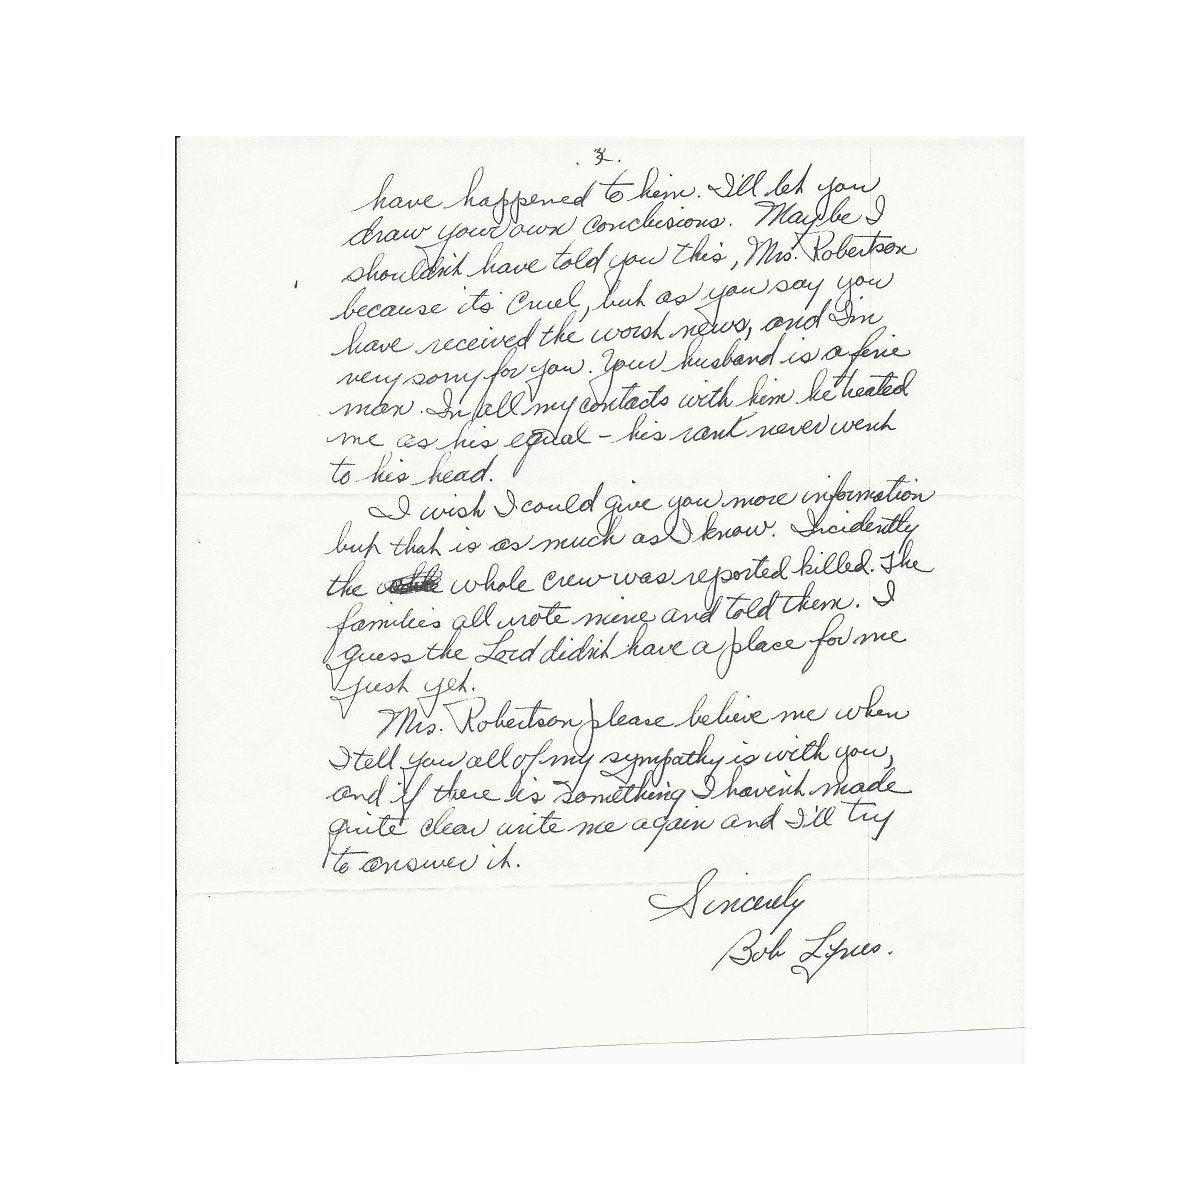 3.
have happened to him. I'll let you
draw your own conclusions. Maybe I
shouldn't have told you this, Mrs. Robertson
because its cruel, but as you say you
have received the worst news, and I'm
very sorry for you. Your husband is a fine
man. In all my contacts with him he treated
me as his equal – his rank never went
to his head.
I wish I could give you more information
but that is as much as I know. Incidently
the whole crew was reported killed. The
families all wrote mine and told them. I
guess the Lord didn't have a place for me
just yet.
Mrs. Robertson please believe me when
I tell you all of my sympathy is with you,
and if there is something I haven't made
quite clear write me again and I'll try
to answer it.
Sincerely
Bob Lynes.